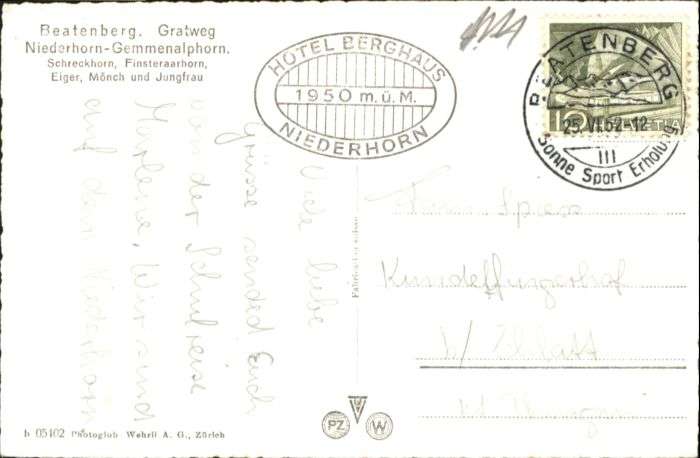 Beatenberg. Gratweg
Niederhorn-Gemmenalphorn.
Schreckhorn, Finsteraarhorn,
Eiger, Mönch und Jungfrau
HOTEL BERGHAUS
1950 m.ü.M.
NIEDERHORN
BEATENBERG
25.VI.52-12
III
Sonne Sport Erholung
10 HELVETIA
Viele liebe
Grüsse sendet Euch
von der Schulreise
Marlene. Wir sind
auf dem Niederhorn
Spiess
b/
PZ W
b 05102 Photoglob-Wehrli A. G., Zürich